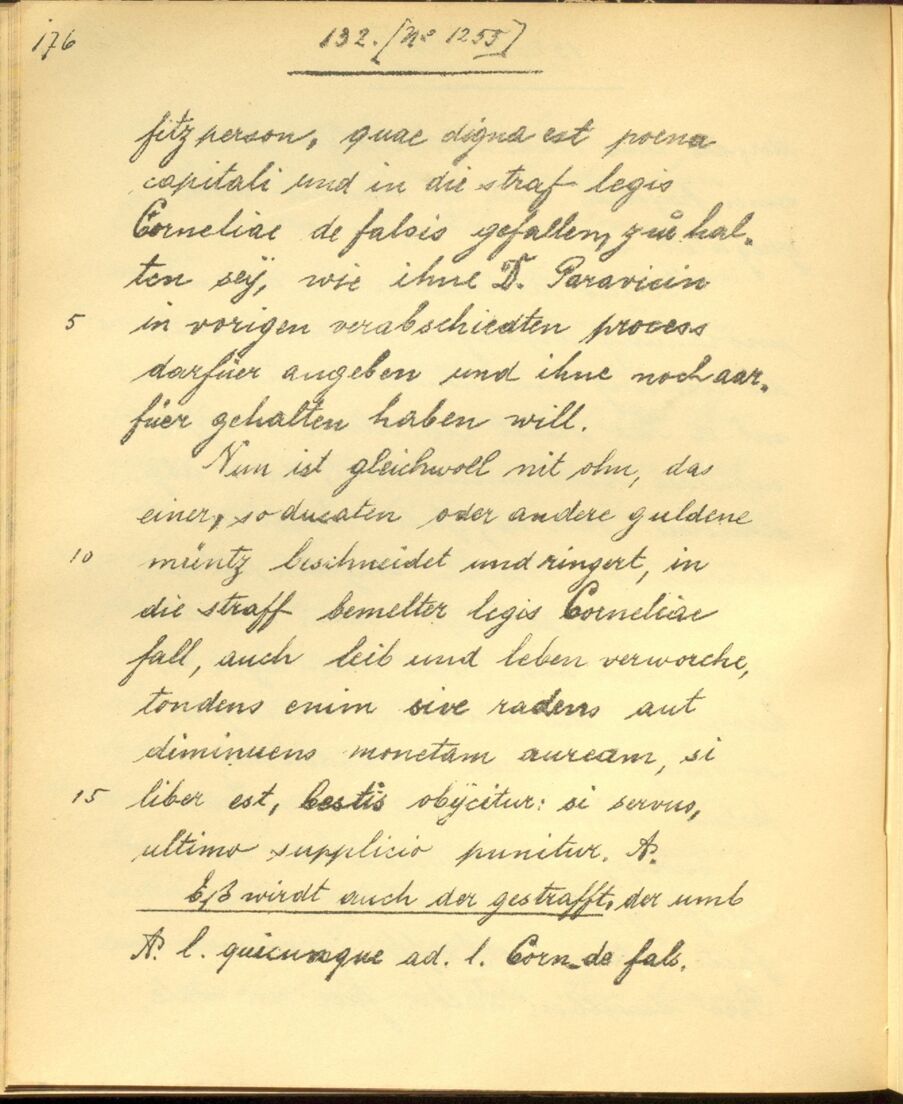 176
132. [No 1255]
fitzperson, quae digna est poena
capitali und in die straf legis
Corneliae de falsis gefallen, zuͦ hal-
ten seÿ, wie ihne D. Paravicin
5 in vorigen verabschiedten process
darfüer angeben und ihne noch dar-
füer gehalten haben will.
Nun ist gleichwoll nit ohn, das
einer, so ducaten oder andere guldene
10 müntz beschneidet und ringert, in
die straff bemelter legis Corneliae
fall, auch leib und leben verworche,
tondens enim sive radens aut
diminuens monetam auream, si
15 liber est, bestis obÿcitur: si servus,
ultimo supplicio punitur. A.
Eß wirdt auch der gestrafft, der umb
A. l. quicunque ad. l. Corn. de fals.